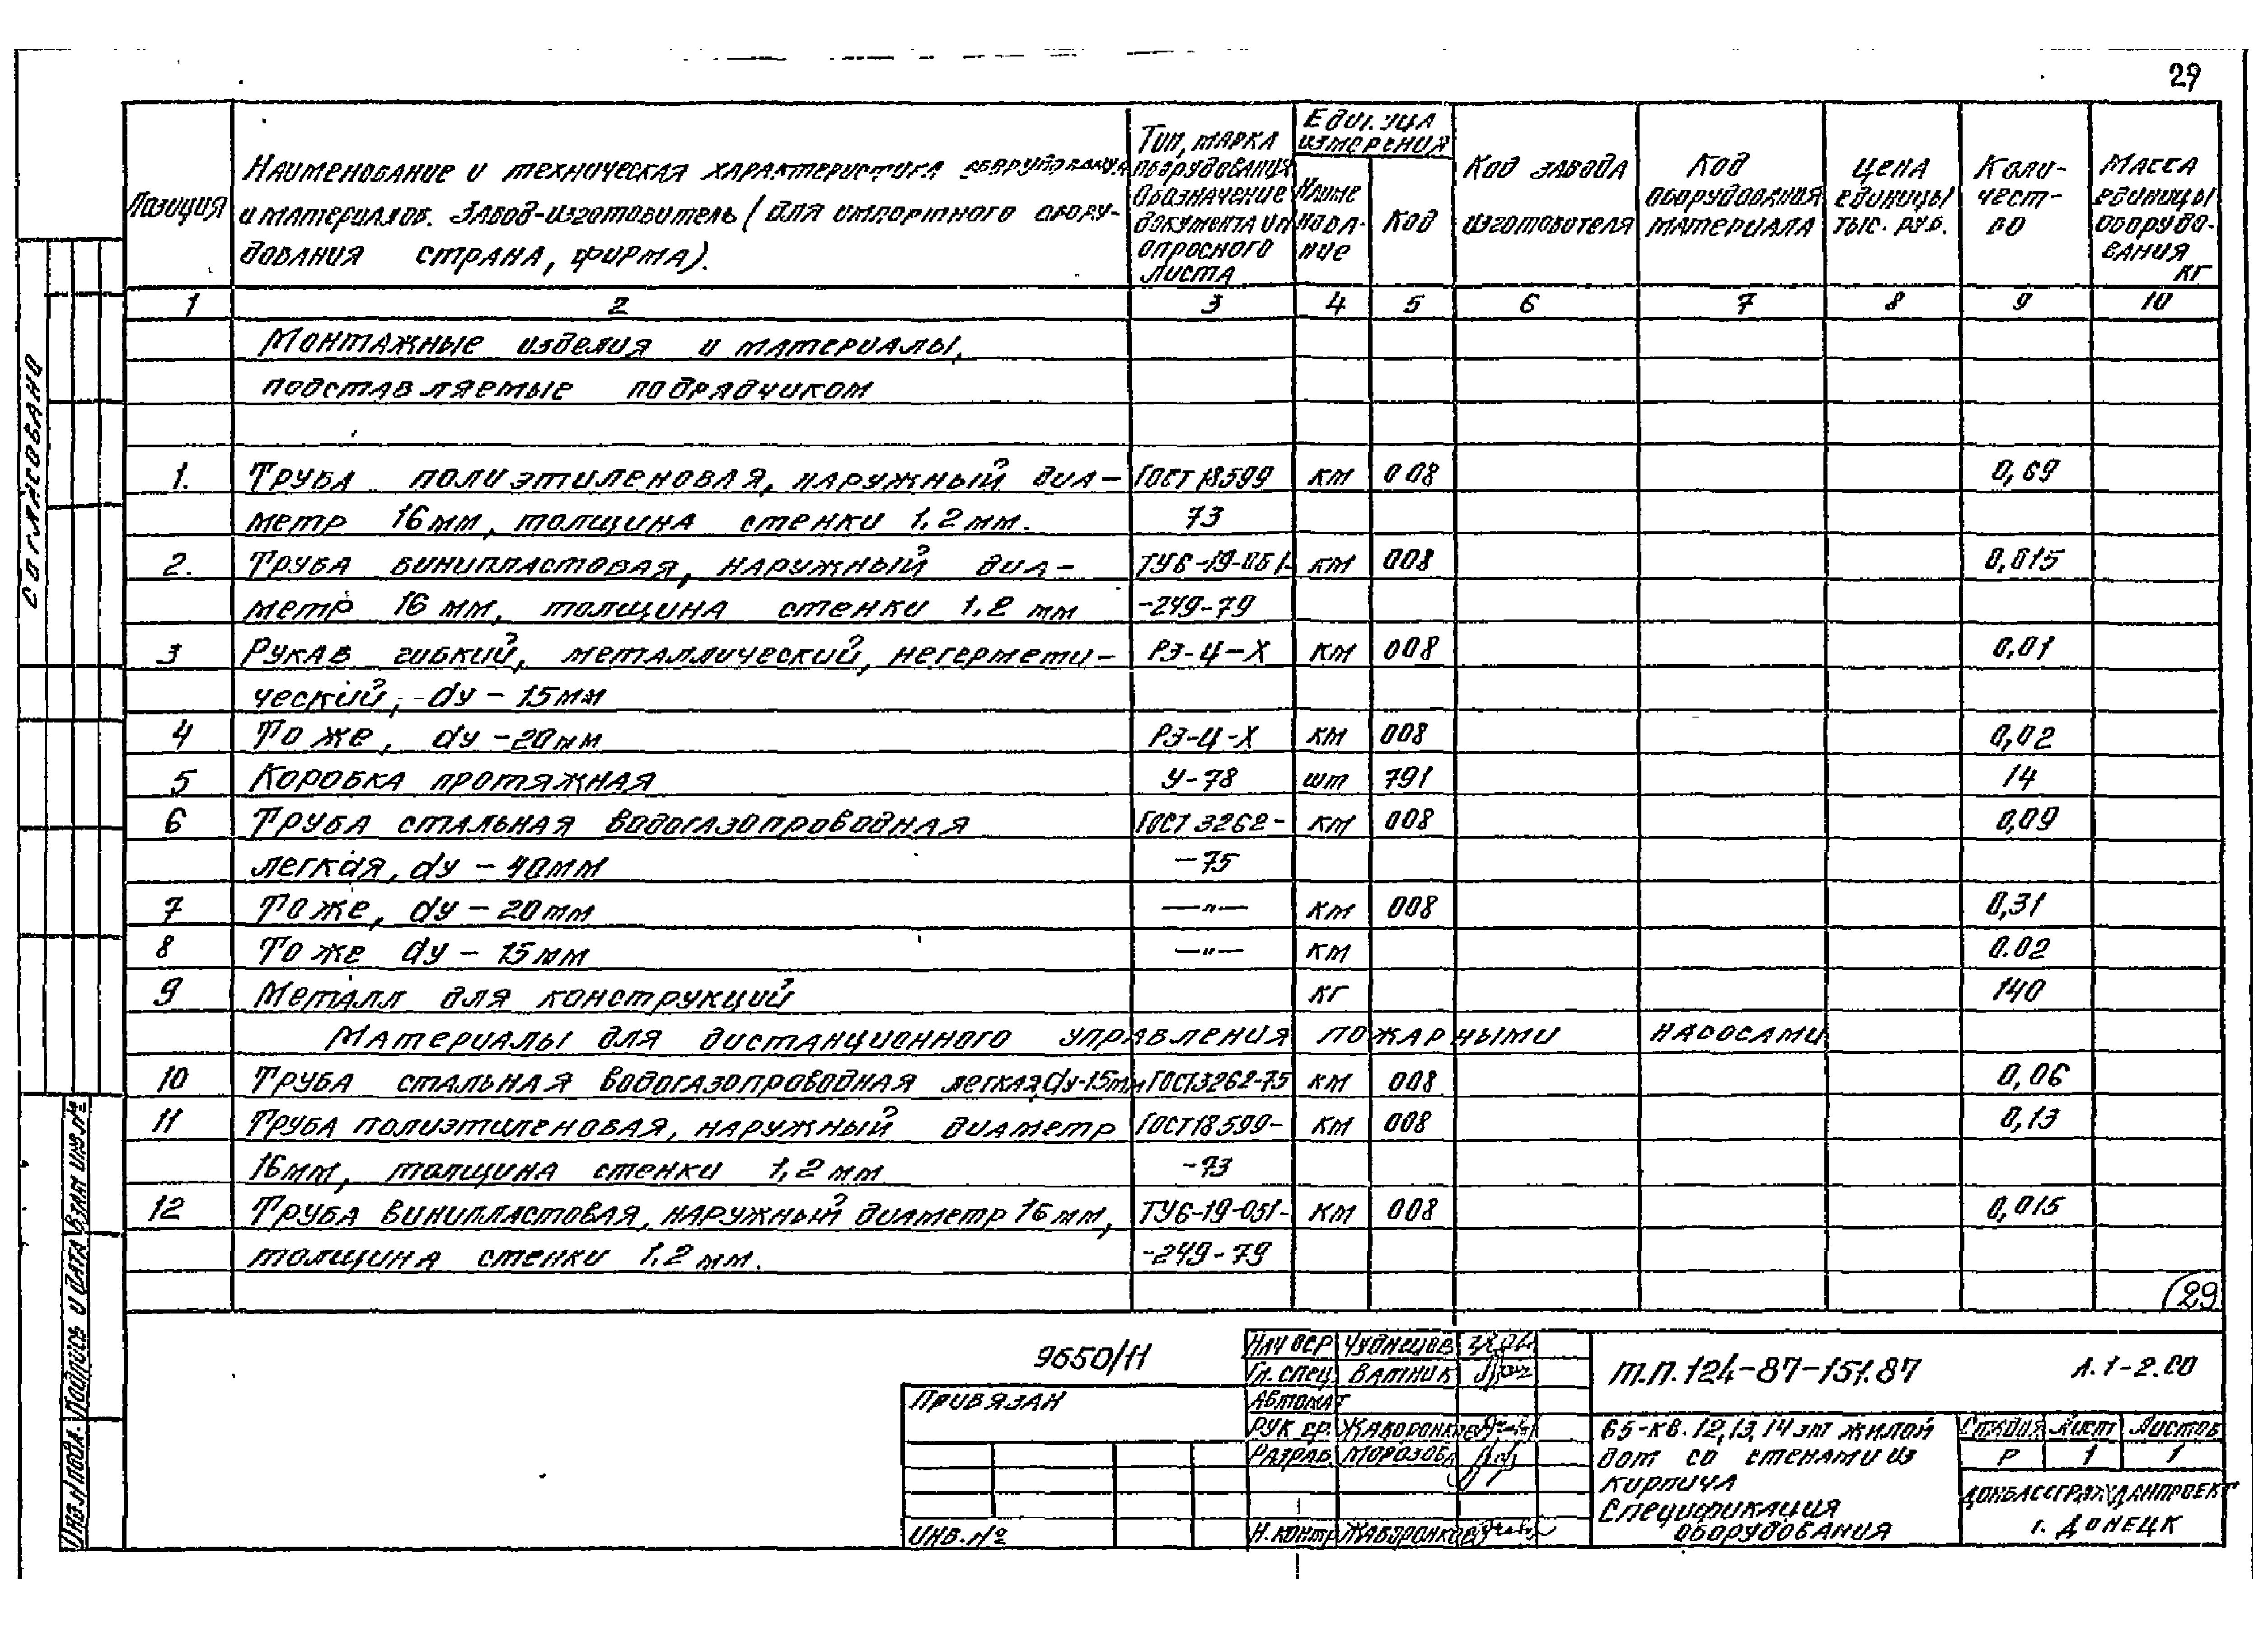 29
Позиция
Наименование и техническая характеристика оборудования
и материалов. Завод-изготовитель (для импортного обору-
дования страна, фирма).
Тип, марка
оборудования
Обозначение
документа и
опросного
листа
Единица
измерения
Наиме
нова-
ние
Код
Код завода
изготовителя
Код
оборудования
материала
Цена
единицы
тыс. руб.
Коли-
чест-
во
Масса
единицы
оборудо-
вания
кг
1 2 3 4 5 6 7 8 9 10
Монтажные изделия и материалы,
подставляемые подрядчиком
1. Труба полиэтиленовая, наружный диа- ГОСТ 18599 км 008 0,69
метр 16мм, толщина стенки 1,2 мм. 73
2. Труба винипластовая, наружный диа- ТУ6-19-051- км 008 0,015
метр 16 мм, толщина стенки 1,2 мм -249-79
3 Рукав гибкий, металлический, негермети- РЗ-Ц-Х км 008 0,01
ческий, dу - 15мм
4 То же, dу -20мм РЗ-Ц-Х км 008 0,02
5 Коробка протяжная У-78 шт 791 14
6 Труба стальная водогазопроводная ГОСТ 3262- км 008 0,09
легкая, dу - 40мм -75
7 То же, dу - 20мм —"— км 008 0,31
8 То же dу - 15мм —"— км 0.02
9 Металл для конструкций кг 140
Материалы для дистанционного управления пожарными насосами
10 Труба стальная водогазопроводная легкая,dу-15мм ГОСТ3262-75 км 008 0,06
11 Труба полиэтиленовая, наружный диаметр ГОСТ18599- км 008 0,13
16мм, толщина стенки 1,2 мм -73
12 Труба винипластовая, наружный диаметр 16мм, ТУ6-19-051- км 008 0,015
толщина стенки 1.2 мм. -249-79
29
Согласовано
Взам инв.№
Подпись и дата
Инв.№подл.
9650/11
Привязан
Инв.№
Нач ОСР
Гл. спец. Ватник
Автомат
Рук гр. Жаворонков
Разраб. Морозова
Н.контр Жаворонков
т.п. 124-87-151.87 А.1-2.СО
65-кв. 12,13,14 эт жилой
дом со стенами из
кирпича
Спецификация
оборудования
Стадия Лист Листов
Р 1 1
Донбассгражданпроект
г. Донецк